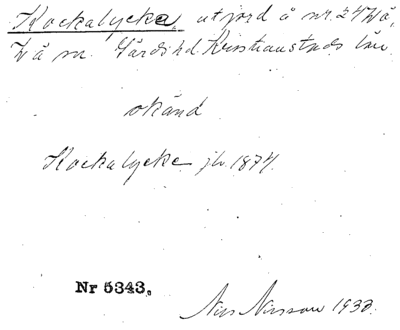 Kockalycke, utjord å nr. 24 Vä,
Vä sn. Gärds hd. Kristianstads län
okänd
Kockalycke jb. 1874.
Nr 5343.
Nils Nilsson 1930.